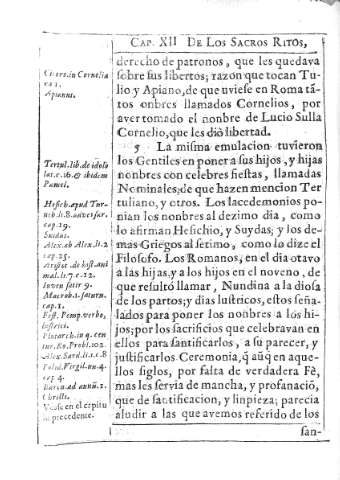 CAP. XII DE LOS SACROS RITOS,
derecho de patronos, que les quedava
sobre sus libertos; razon que tocan Tu-
lio y Apiano, de que uviese en Roma tã-
tos onbres llamados Cornelios, por
aver tomado el nonbre de Lucio Sulla
Cornelio, que les diò libertad.
5 La misma emulacion tuvieron
los Gentiles en poner a sus hijos, y hijas
nonbres con celebres fiestas, llamadas
Nominales; de que hazen mencion Ter
tuliano, y otros. Los lacedemonios po-
nian los nonbres al dezimo dia, como
lo afirman Hesichio, y Suydas; y los de-
mas Griegos al setimo, como lo dize el
Filosofo. Los Romanos, en el dia otavo
a las hijas, y a los hijos en el noveno, de
que resultó llamar, Nundina a la diosa
de los partos; y dias lustricos, estos seña-
lados para poner los nonbres a los hi-
jos; por los sacrificios que celebravan en
ellos para santificarlos, a su parecer, y
justificarlos Ceremonia, q̃ aũq̃ en aque-
llos siglos, por falta de verdadera Fè,
mas les servia de mancha, y profanaciõ,
que de santificacion, y linpieza; parecia
aludir a las que avemos referido de los
san-
Cicero. in Cornelia
Apianus.
Tertul. lib. de idolo
lat. c. 16. & ibidem
Pamel.
Hesich. apud Tur-
neb. li. 8. adversar.
cap. 19.
Suidas.
Alex. ab Alex. li. 2
cap. 25.
Aristot. de hist. ani
mal. li. 7. c. 12.
Iuven satir 9.
Macrob. 1. saturn.
cap. 1.
Fest. Pomp. verbo,
lustrici.
Plutarch. in q. cen
tur. Ro. Probl. 102.
Alex. Sard. li. 1. c. 8
Polid. Virgil. in. 4.
cap 4.
Baron. ad annũ. 2.
Christi.
Vease en el capitu
lo precedente.